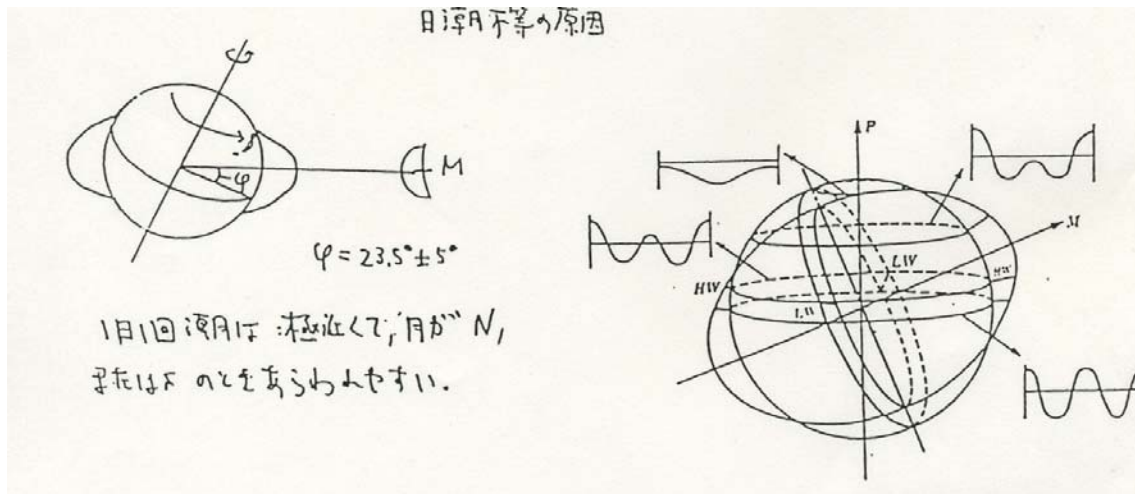 日潮不等の原因
M
φ
φ = 23.5° ± 5°
1日1回潮は 極近くで,月が N,
またはS のときあらわれやすい.
P
M
HW
LW
HW
LW